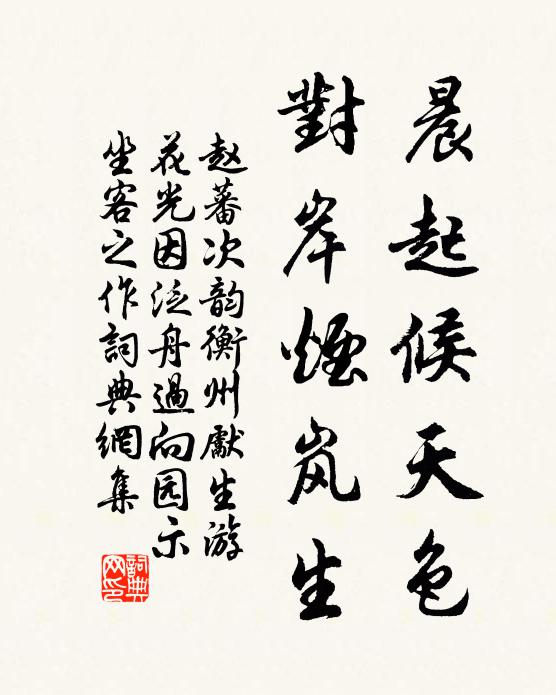 晨起候天色
對岸煙岚生
赵蕃次韵衡州獻生游
花光因泛舟過向园示
坐客之作詞典網集
詞典
网印